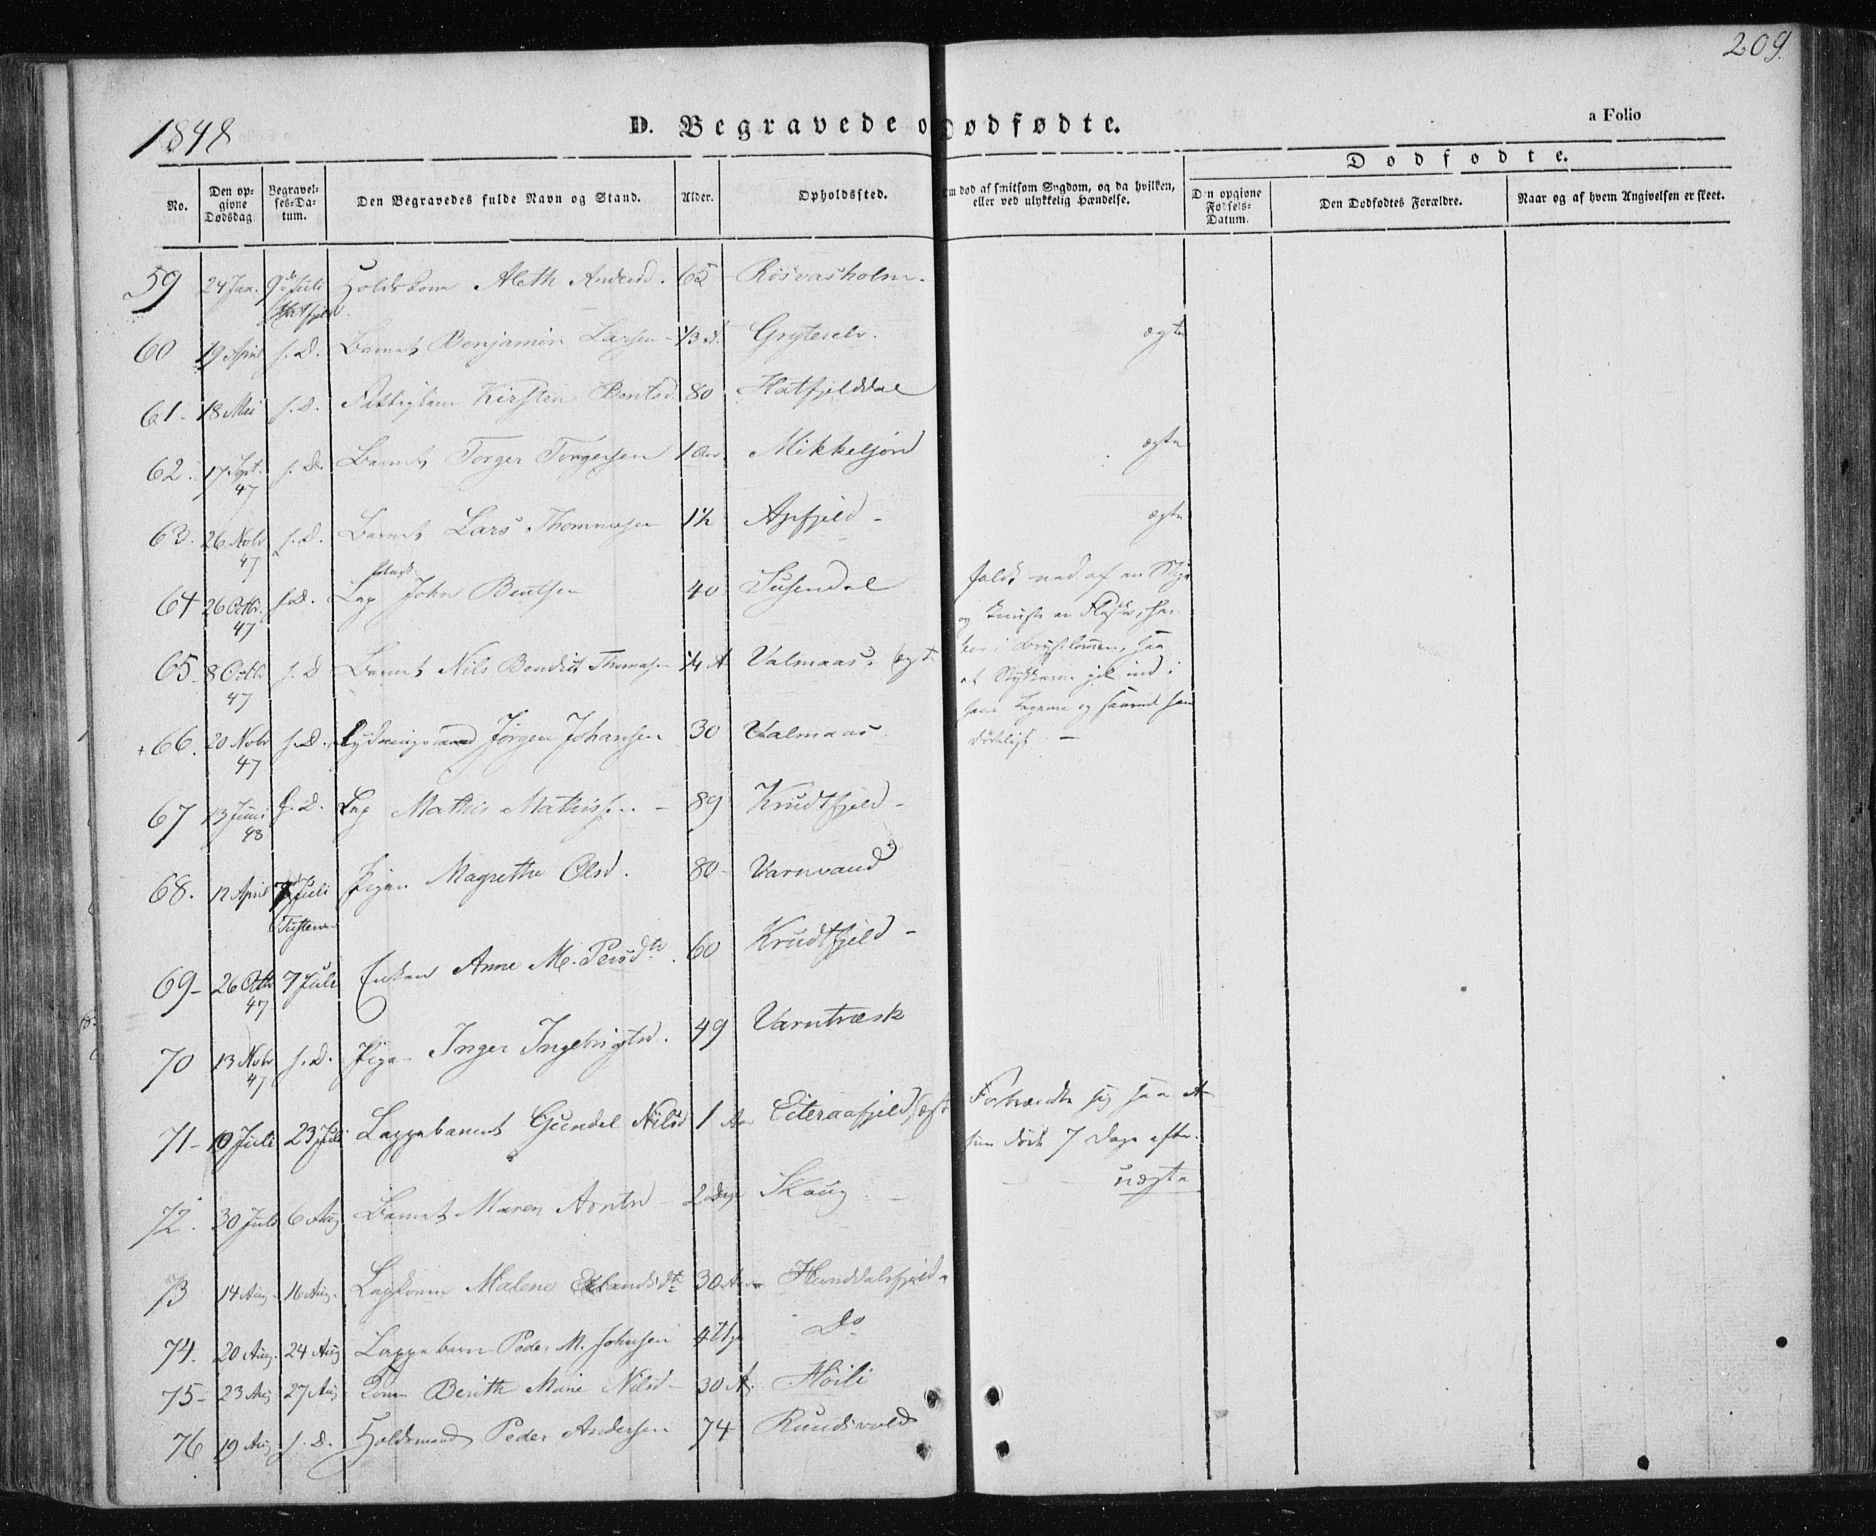 209.
1848
D. Begravede o Dødfødte.
a Folio
Dødfødte.
No.
Den opgivne Dødsdag
Begravelses-Datum.
Den Begravedes fulde Navn og Stand.
Alder.
Opholdssted.
Om død af smitsom Sygdom, og da hvilken, eller ved ulykkelig Hændelse.
Den opgivne Fødsels-Datum.
Den Dødfødtes Forældre.
Naar og af hvem Angivelsen er skeet.
59 24 Jan. 9de Juli Hatfjeld Aleth Andersd. 65 Røsvasholm.
60 19 April s. D. Barnet Benjamin Larsen 1/3 Gryteselv. ægte
61 18 Mai s. D. Kirsten Bentsd. 80 Hatfjelddal
62. 17 Sept. 47 s. D. Barnet Torger Torgersen 1 Aar Mikkeljord ægte
63. 26 Nobr 47 s. D. Barnet Lars Thommasen 1½ Apfjeld ægte
64 26 Octbr. 47 s. D. Lap John Bentsen 40 Susendal
faldt ned af en
og knuste en Flaske, han
bar i Brystlommen, saa
at Stykkerne gik ind i
hans Legeme og saared ham
dødeligt
65. 8 Octbr 47 s. D Barnet Nils Bendict Thomasen ¼ A Valmaas. ægte
+ 66. 20 Nobr 47 s. D. Rydningsmand Jørgen Johansen 30 Valmaas
67 13 Juni 48 s. D. Lap Mathis Mathissen 89 Krudtfjeld
68. 12 April 7 Juli Pigen Magrethe Olsd. 80 Varnvand
69 26 Octbr 47 7 Juli Enken Anne M. Persdtr. 60 Krudtfjeld
70 13 Nobr 47 s. D. Pigen Inger Ingebrigtsd. 49 Varntræsk
71 10 Juli 23 Juli Lappebarnet Gundel Nilsd 1 Aar Eiteraafjeld, ægt
Forbrændte sig saa at
hun døde 7 Dage efter.
72. 30 Juli 6 Aug Barnet Maren Arntsd 2 Dage Skaug uægte
73 14 Aug. 16 Aug. Lapkonen Malene Erlandsdtr 30 Aar Hunddalsfjeld
74. 20 Aug. 24 Aug Lappebarn Peder M. Johnsen 4 Uger Do
75 23 Aug 27 Aug Konen Berith Marie Nilsd 30 A. Høili
76 19 Aug s. D. Holdsmand Peder Andersen 74 Rundsvold